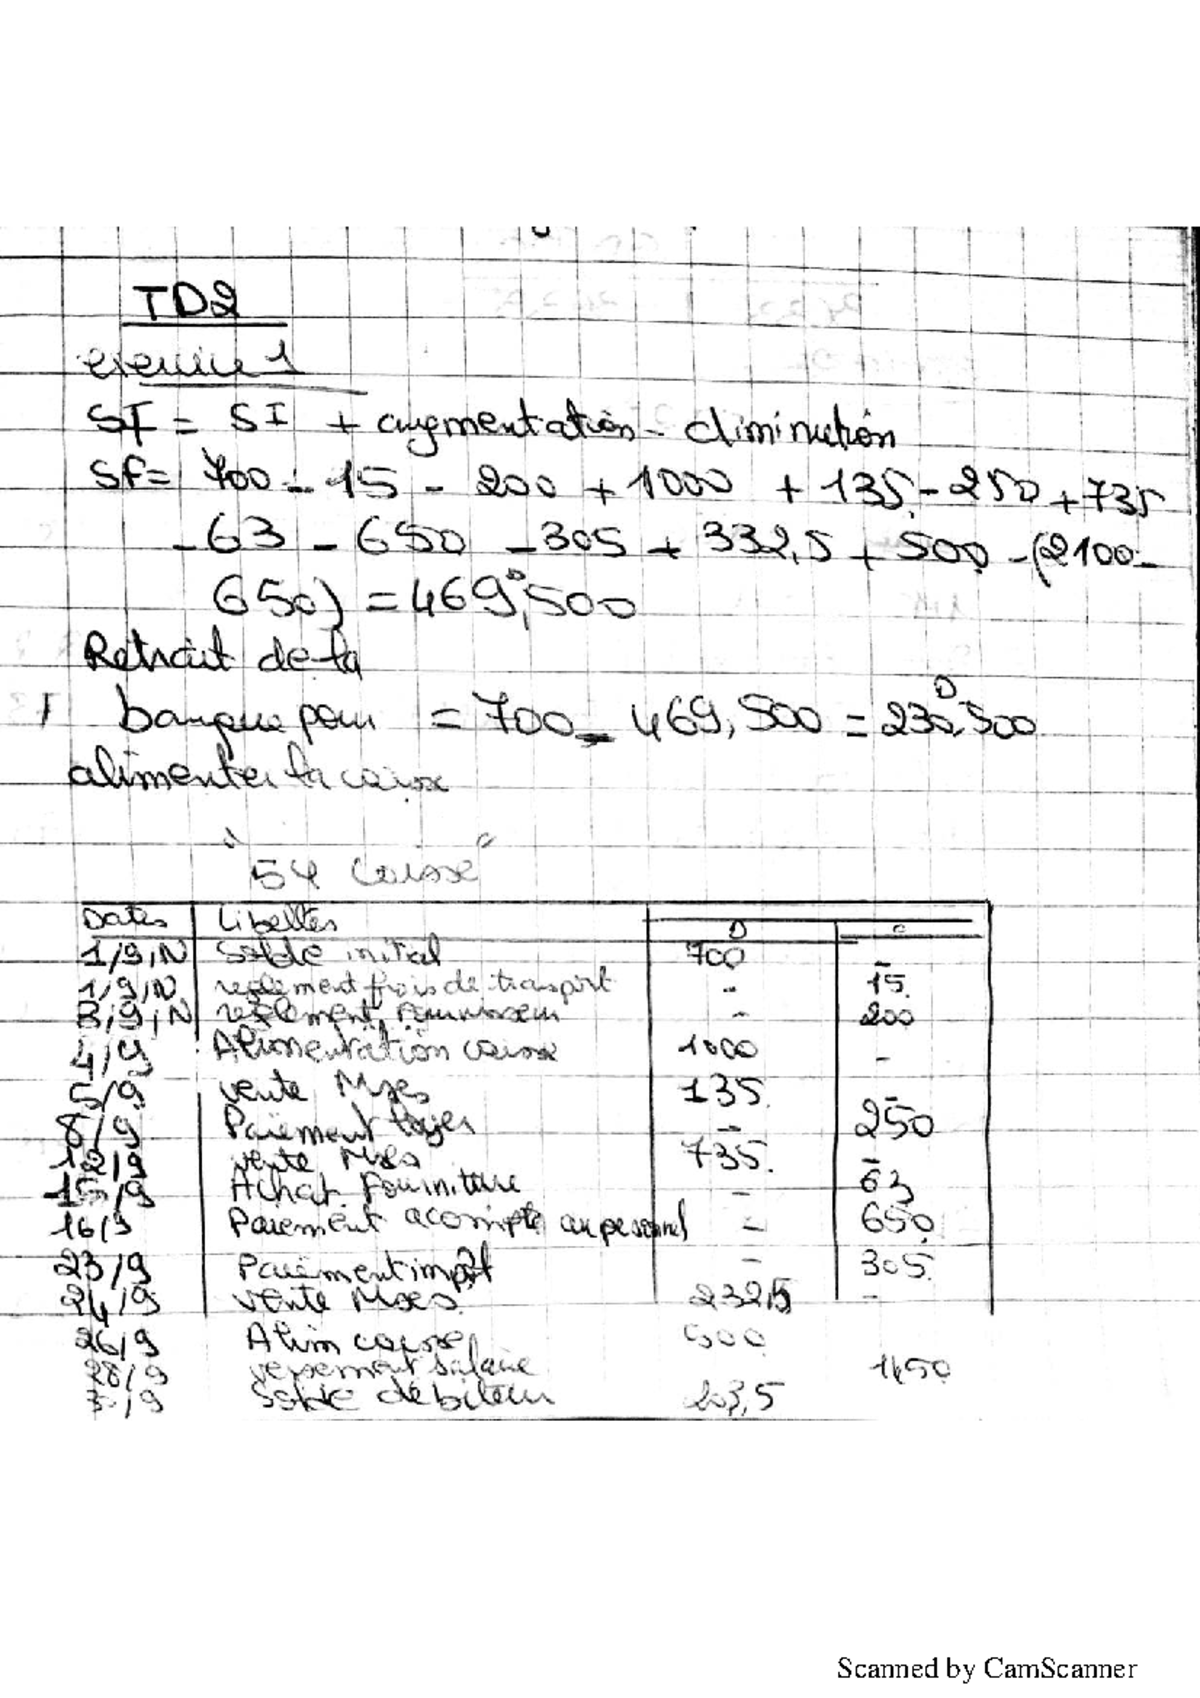 TD2
exercice 1
SF = SI + augmentation - diminution
SF = 700 - 15 - 200 + 1000 + 135 - 250 + 735
- 63 - 650 - 305 + 332,5 + 500 - (2100 -
650) = 469D,500
Retrait de la
banque pour = 700 - 469,500 = 230D,500
alimenter la caisse
"54 caisse"
Dates Libellés D C
1/9/N Solde initial 700 -
1/9/N reglement frois de transport - 15
3/9/N reglement fournisseur - 200
4/9 Alimentation caisse 1000 -
5/9 vente Mses 135 -
8/9 Paiement loyer - 250
12/9 vente Mses 735 -
15/9 Achat fourniture - 63
16/9 Paiement acompte au personnel - 650
23/9 Paiement impôt - 305
24/9 vente Mses 232,5 -
26/9 Alim caisse 500
28/9 versement salaire 1450
30/9 Solde débiteur 203,5
Scanned by CamScanner